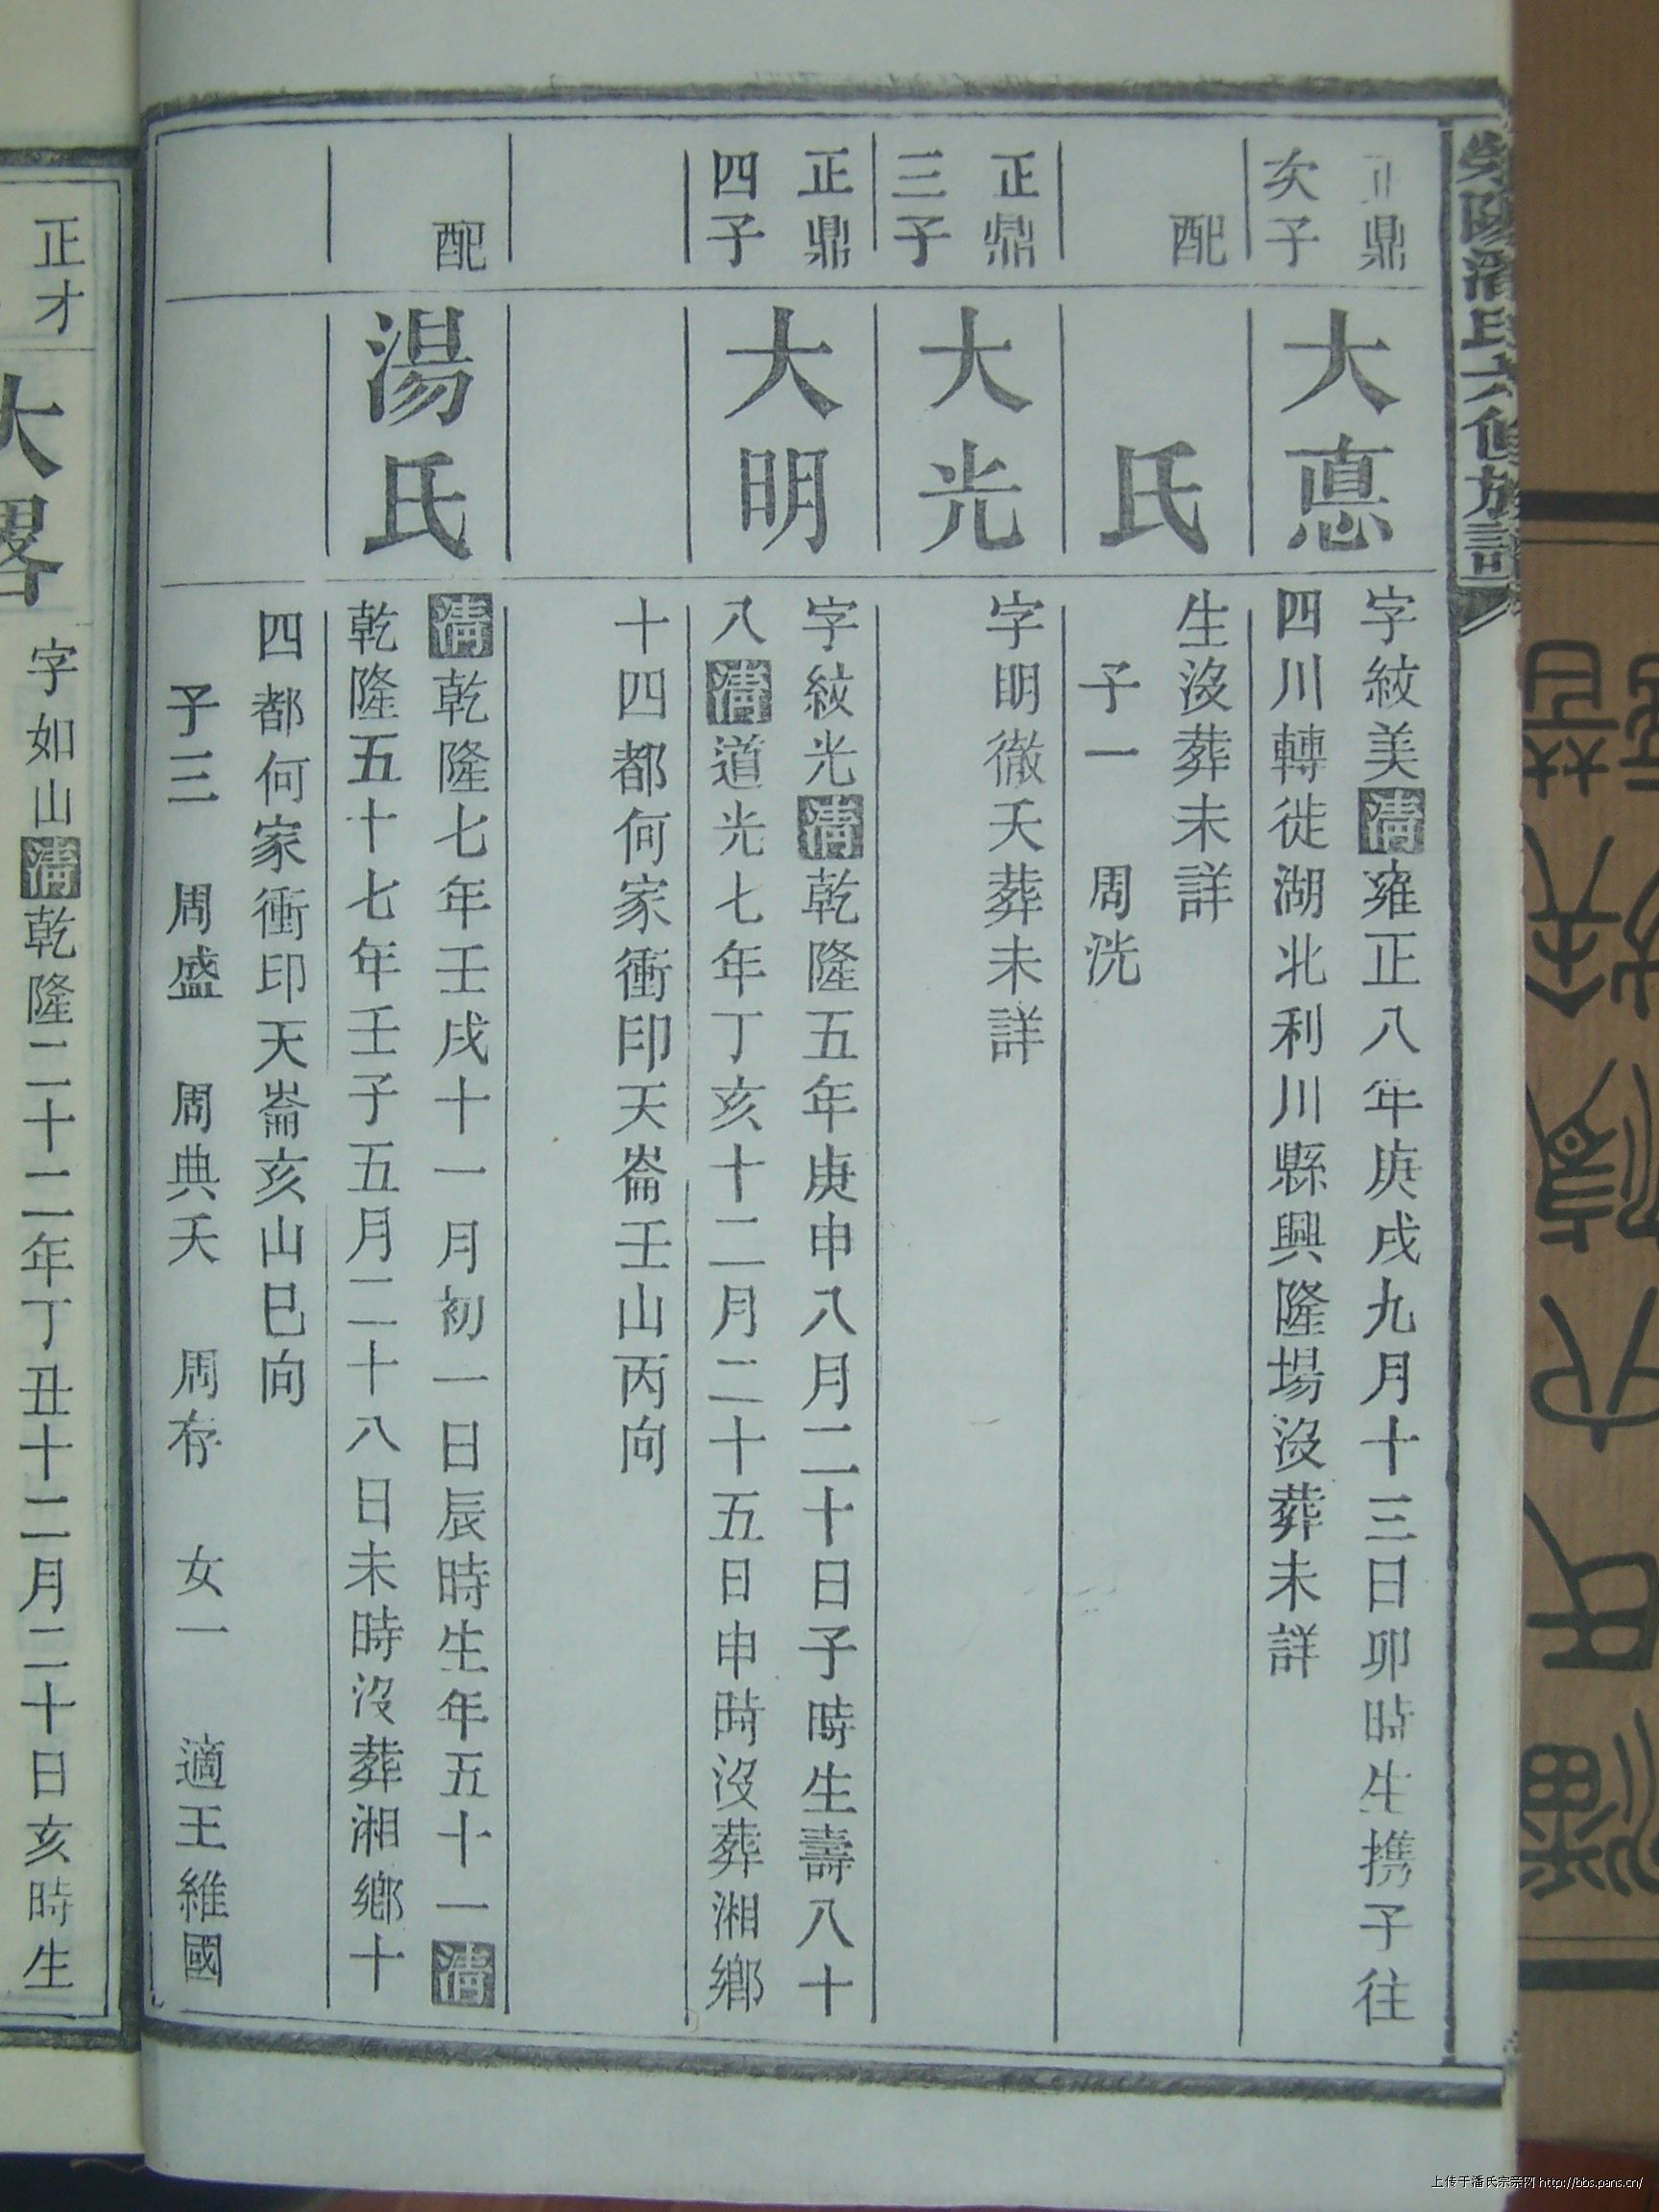 滎陽潘氏六修族譜
正鼎
次子
大悳
字紋美清雍正八年庚戌九月十三日卯時生携子往
四川轉徙湖北利川縣興隆場沒葬未詳
配
氏
生沒葬未詳
子一 周洸
正鼎
三子
大光
字明徹夭葬未詳
正鼎
四子
大明
字紋光清乾隆五年庚申八月二十日子時生壽八十
八清道光七年丁亥十二月二十五日申時沒葬湘鄉
十四都何家衝印天崙壬山丙向
配
湯氏
清乾隆七年壬戌十一月初一日辰時生年五十一清
乾隆五十七年壬子五月二十八日未時沒葬湘鄉十
四都何家衝印天崙亥山巳向
子三 周盛 周典夭 周存 女一 適王維國
正才
大畧
字如山清乾隆二十二年丁丑十二月二十日亥時生
上传于潘氏宗亲网 http://bbs.pans.cn/